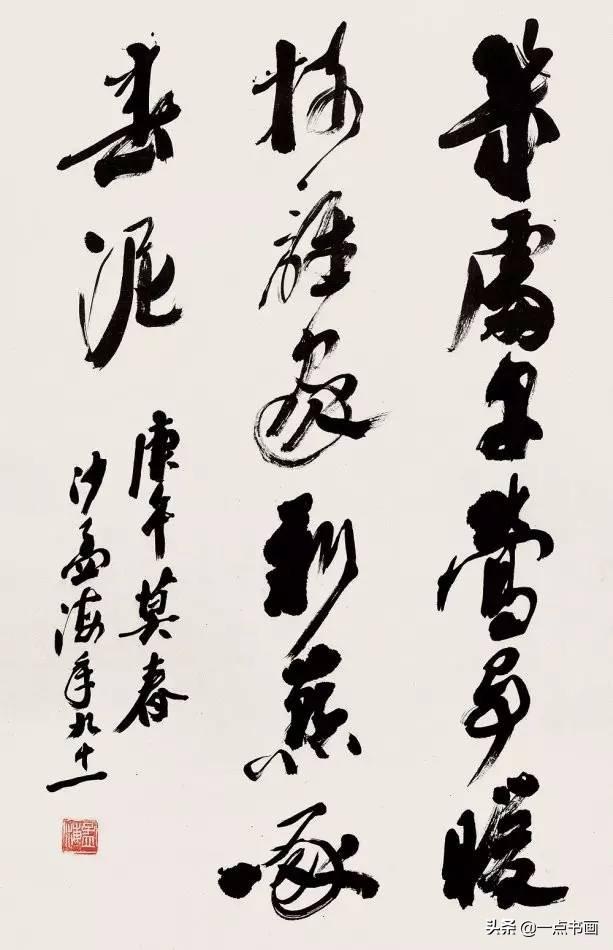 幾處早鶯爭暖
樹誰家新燕啄
春泥
庚午莫春
沙孟海年九十一
孟海
头条 @一点书画